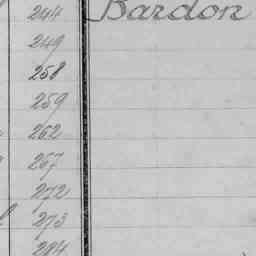 244 Bardon
249
258
259
262
267
272
273
284